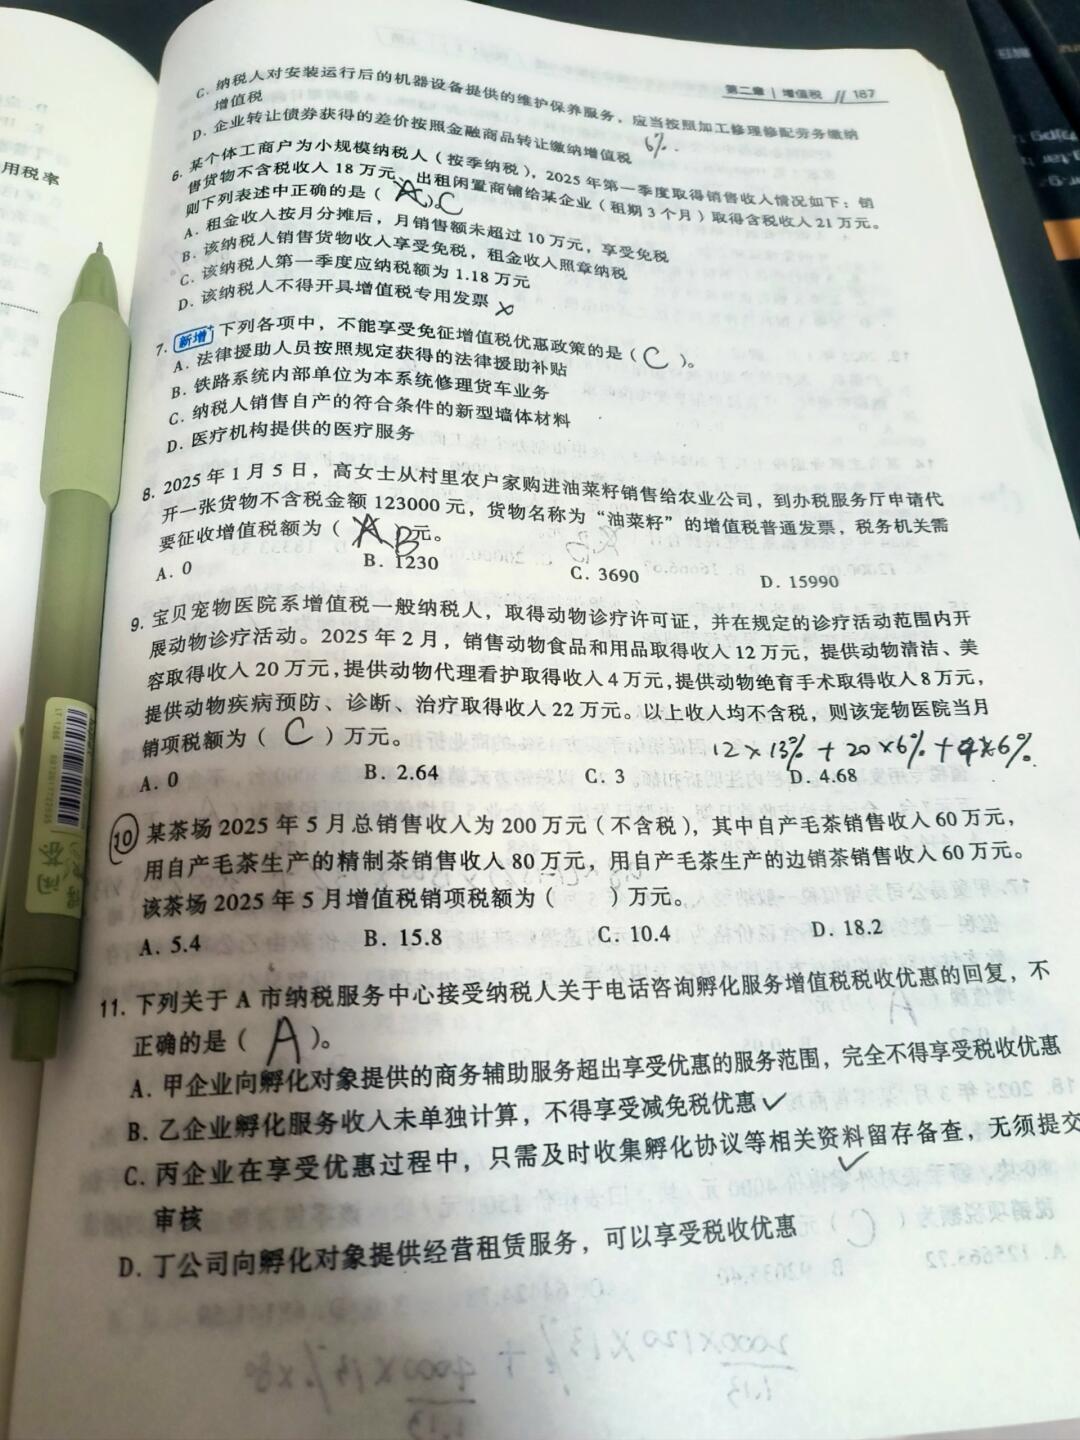 第二章 | 增值税 // 187
用税率
C. 纳税人对安装运行后的机器设备提供的维护保养服务，应当按照加工修理修配劳务缴纳
增值税
6%.
D. 企业转让债券获得的差价按照金融商品转让缴纳增值税
6. 某个体工商户为小规模纳税人（按季纳税），2025 年第一季度取得销售收入情况如下：销
售货物不含税收入 18 万元，出租闲置商铺给某企业（租期 3 个月）取得含税收入 21 万元。
则下列表述中正确的是（ A ）。C
A. 租金收入按月分摊后，月销售额未超过 10 万元，享受免税
B. 该纳税人销售货物收入享受免税，租金收入照章纳税
C. 该纳税人第一季度应纳税额为 1.18 万元
D. 该纳税人不得开具增值税专用发票 ×
7. 新增 下列各项中，不能享受免征增值税优惠政策的是（ C ）。
A. 法律援助人员按照规定获得的法律援助补贴
B. 铁路系统内部单位为本系统修理货车业务
C. 纳税人销售自产的符合条件的新型墙体材料
D. 医疗机构提供的医疗服务
8. 2025 年 1 月 5 日，高女士从村里农户家购进油菜籽销售给农业公司，到办税服务厅申请代
开一张货物不含税金额 123000 元，货物名称为“油菜籽”的增值税普通发票，税务机关需
要征收增值税额为（ A B 元。
A. 0 B. 1230 C. 3690 D. 15990
9. 宝贝宠物医院系增值税一般纳税人，取得动物诊疗许可证，并在规定的诊疗活动范围内开
展动物诊疗活动。2025 年 2 月，销售动物食品和用品取得收入 12 万元，提供动物清洁、美
容取得收入 20 万元，提供动物代理看护取得收入 4 万元，提供动物绝育手术取得收入 8 万元，
提供动物疾病预防、诊断、治疗取得收入 22 万元。以上收入均不含税，则该宠物医院当月
销项税额为（ C ）万元。
12×13%+20×6%+4×6%.
A. 0 B. 2.64 C. 3 D. 4.68
10 某茶场 2025 年 5 月总销售收入为 200 万元（不含税），其中自产毛茶销售收入 60 万元，
用自产毛茶生产的精制茶销售收入 80 万元，用自产毛茶生产的边销茶销售收入 60 万元。
该茶场 2025 年 5 月增值税销项税额为（ ）万元。
A. 5.4 B. 15.8 C. 10.4 D. 18.2
11. 下列关于 A 市纳税服务中心接受纳税人关于电话咨询孵化服务增值税税收优惠的回复，不
正确的是（ A ）。
A. 甲企业向孵化对象提供的商务辅助服务超出享受优惠的服务范围，完全不得享受税收优惠
B. 乙企业孵化服务收入未单独计算，不得享受减免税优惠 ✓
C. 丙企业在享受优惠过程中，只需及时收集孵化协议等相关资料留存备查，无须提交
✓
审核
D. 丁公司向孵化对象提供经营租赁服务，可以享受税收优惠